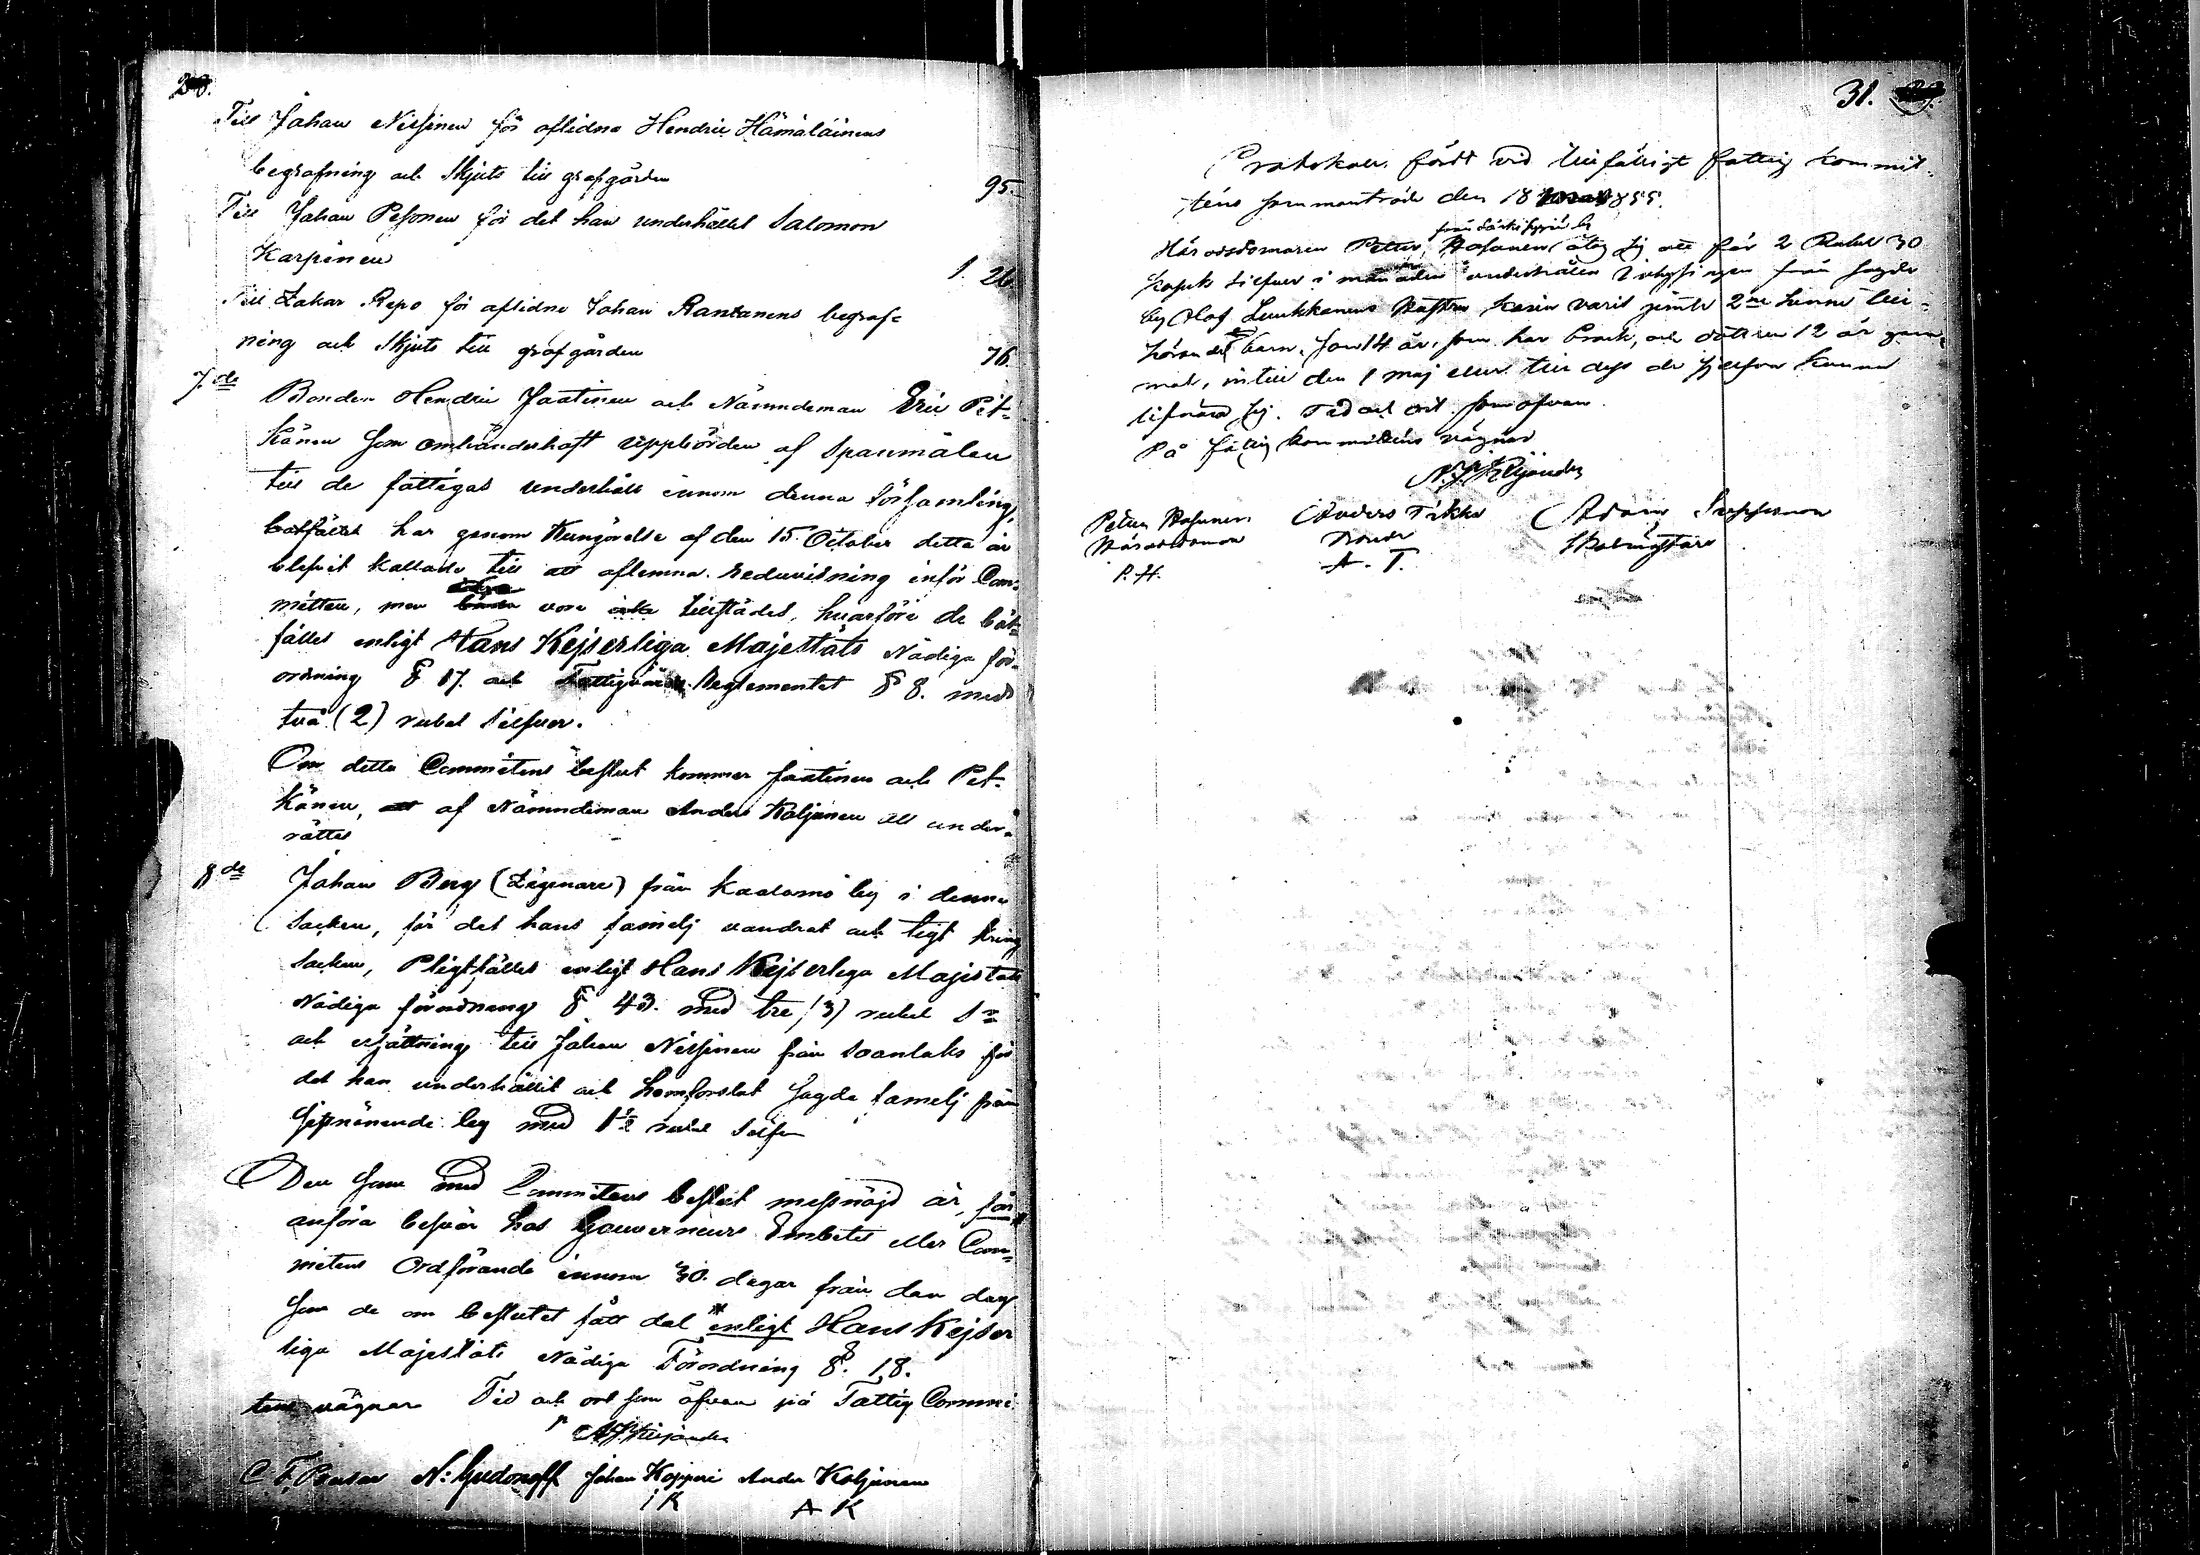 Till Johan Nissinen för aflidne Hendric Hämäläinens
begrafning och Skjuts till grafgården 95.
Till Johan Pesonen för det han underhållet Salomon
Karpinen 1. 26
Till Zakar Repo för aflidne Johan Rantanens begraf=
ning och Skjuts till grafgården 76.
7.de Bonden Hendric Jaatinen och Nämndeman Eric Pit=
känen som omhänderhaft uppbörden af Spanmålen
till de fattigas underhåll innom denna Församling,
har genom Kungörelse af den 15 October detta år
blefvit kallade till att aflemna redovisning inför Com=
mitten, men vore icke tillstädes, hvarföre de böt=
fälles enligt Hans Kejserliga Majestäts Nådiga för=
ordning § 17. och Fattigvårds Reglementet § 8. med
två (2) rubel Silfver.
Om detta Committens beslut kommer Jaatinen och Pit=
känen, af Nämndeman Anders Koljonen att under=
rättes
8de Johan Berg (Zigenare) från by i denna
Socken, för det hans familj vandrat och legt kring
Socken, Pligtfälles enligt Hans Kejserliga Majestäts
Nådiga förordning § 43. med tre (3) rubel Sr
och ersättning till Johan Nissinen från för
det han underhållit och hemforslat sagde familj från
sistnämnde by med 1½ rubel Silfver
Den som med Committens beslut missnöjd är, får
anföra besvär hos Gouverneurs Embetet eller Com=
mitens Ordförande innom 30. dagar från den dag
som de om beslutet fått del enligt Hans Kejser
liga Majestäts Nådiga Förordning §. 18.
Tid och ort som ofvan på Fattig Commi
tens vägnar
N: Gudonoff Johan Kopperi Anders Koljonen
IK A K
31.
Protokoll fördt vid tillfälligt fattig kommit=
téns sammanträde den 18 1855.
Häradsdomaren Petter åtog sig att för 2 Rubel 30
Kopek Silfver i månaden underhålla från sagde
by Olof Luukkanens hustru jämte 2ne henne till=
hörande barn, son 14 år, som har brock, och dottren 12 år gam=
mal, intill den 1 maj eller till dess de sjelfva kunna
lifnära sig. Tid och ort som ofvan.
På fattig kommitténs vägnar
Petter Anders Tikka Adam
Häradsdomare Bonde
P. H. A. T.